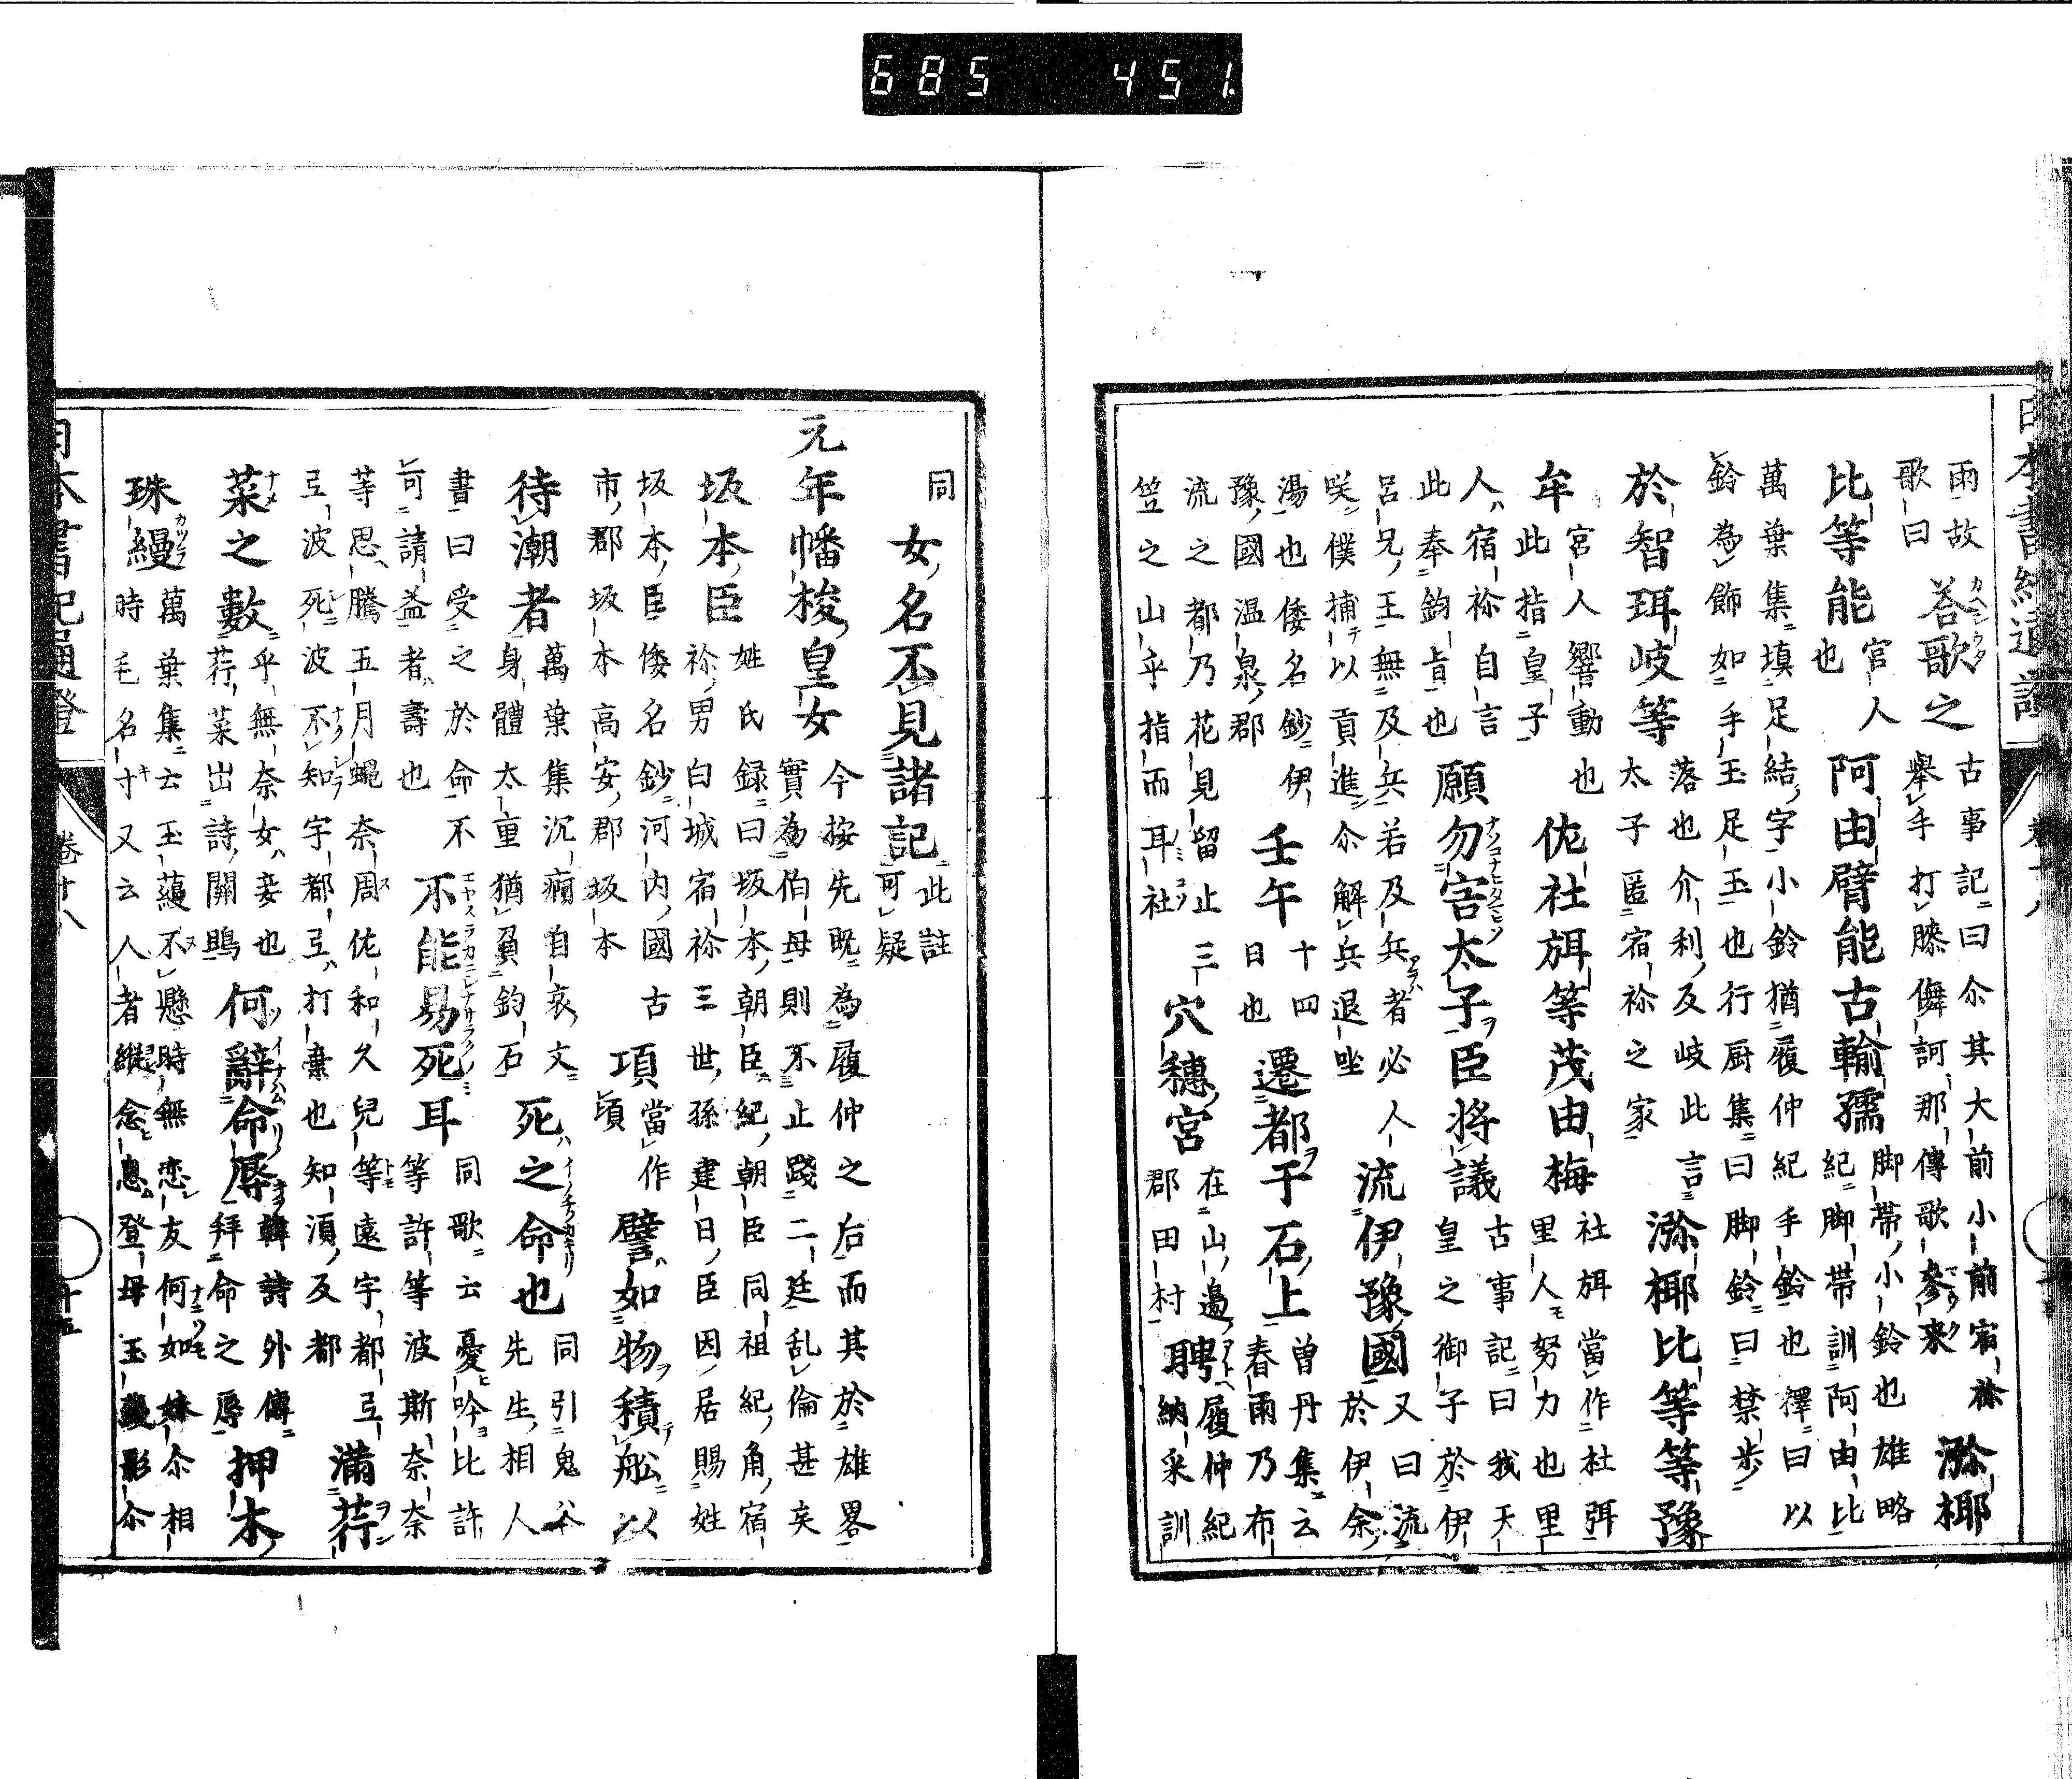 685 451
雨故
歌曰
荅歌之
古事記曰尒其大前小前宿祢
擧手打膝儛訶那傳歌參来
瀰椰
比等能
官人
也
阿由臂能古輸孺
脚帶小鈴也雄略
紀脚帶訓阿由比
萬葉集填足結字小鈴猶履仲紀手鈴也釋曰以
鈴為飾如手玉足玉也行厨集曰脚鈴曰禁步
於智珥岐等
落也介利反岐此言
太子匿宿祢之家
瀰椰比等等豫
牟
宮人響動也
此指皇子
佐社弭等茂由梅
社弭當作杜弭
里人モ努力也里
人宿祢自言
此奉鈞旨也
願勿害太子臣將議
古事記曰我天
皇之御子於伊
呂兄王無及兵若及兵者必人
咲僕捕以貢進尒解兵退坐
流伊豫國
又曰流
於伊余
湯也倭名鈔伊
豫國温泉郡
壬午
十四
日也
遷都于石上
曽丹集云
春雨乃布
流之都乃花見留止
笠之山乎指而耳社
三
穴穗宮
在山邊
郡田村
聘
履仲紀
納采訓
同
女名不見諸記
此註
可疑
元年幡梭皇女
今按先既為履仲之后而其於雄畧
實為伯母則不止踐二廷乱倫甚矣
坂本臣
姓氏録曰坂本朝臣紀朝臣同祖紀角宿
祢男白城宿祢三世孫建日臣因居賜姓
坂本臣倭名鈔河内國古
市郡坂本高安郡坂本
項
當作
頃
譬如物積舩以
待潮者
萬葉集沉痾自哀文
身體太重猶負鈞石
死之命也
同引鬼谷
先生相人
書曰受之於命不
可請益者壽也
不能易死耳
同歌云憂吟比許
等許等波斯奈奈
等思騰五月蝿奈周佐和久兒等遠宇都弖
弖波死波不知宇都弖打棄也知湏反都
滿荇
菜之數
乎無奈女妾也
荇菜出詩關鴡
何辭命辱
韓詩外傳
拜命之辱
押木
珠縵
萬葉集云玉蘰不懸時無恋友何如妹尒相
時毛名寸又云人者縦念息登母玉蘰影尒
卷十八
十五